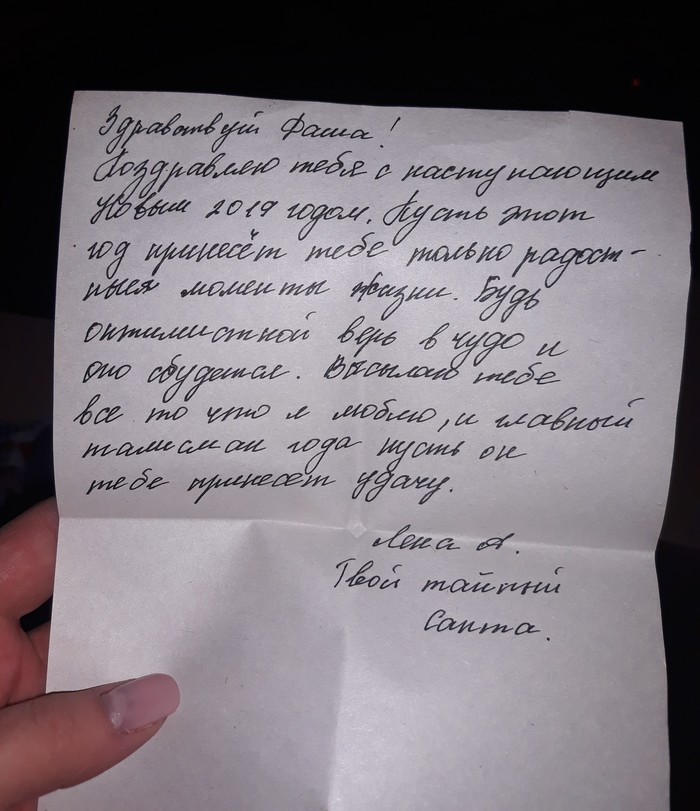 Здравствуй Фаша!
Поздравляю тебя с наступающим
Новым 2019 годом. Пусть этот
год принесёт тебе только радост-
ные моменты жизни. Будь
оптимисткой верь в чудо и
оно сбудется. Высылаю тебе
все то что я люблю, и главный
талисман года пусть он
тебе принесёт удачу.
Лена А.
Твой тайный
Санта.